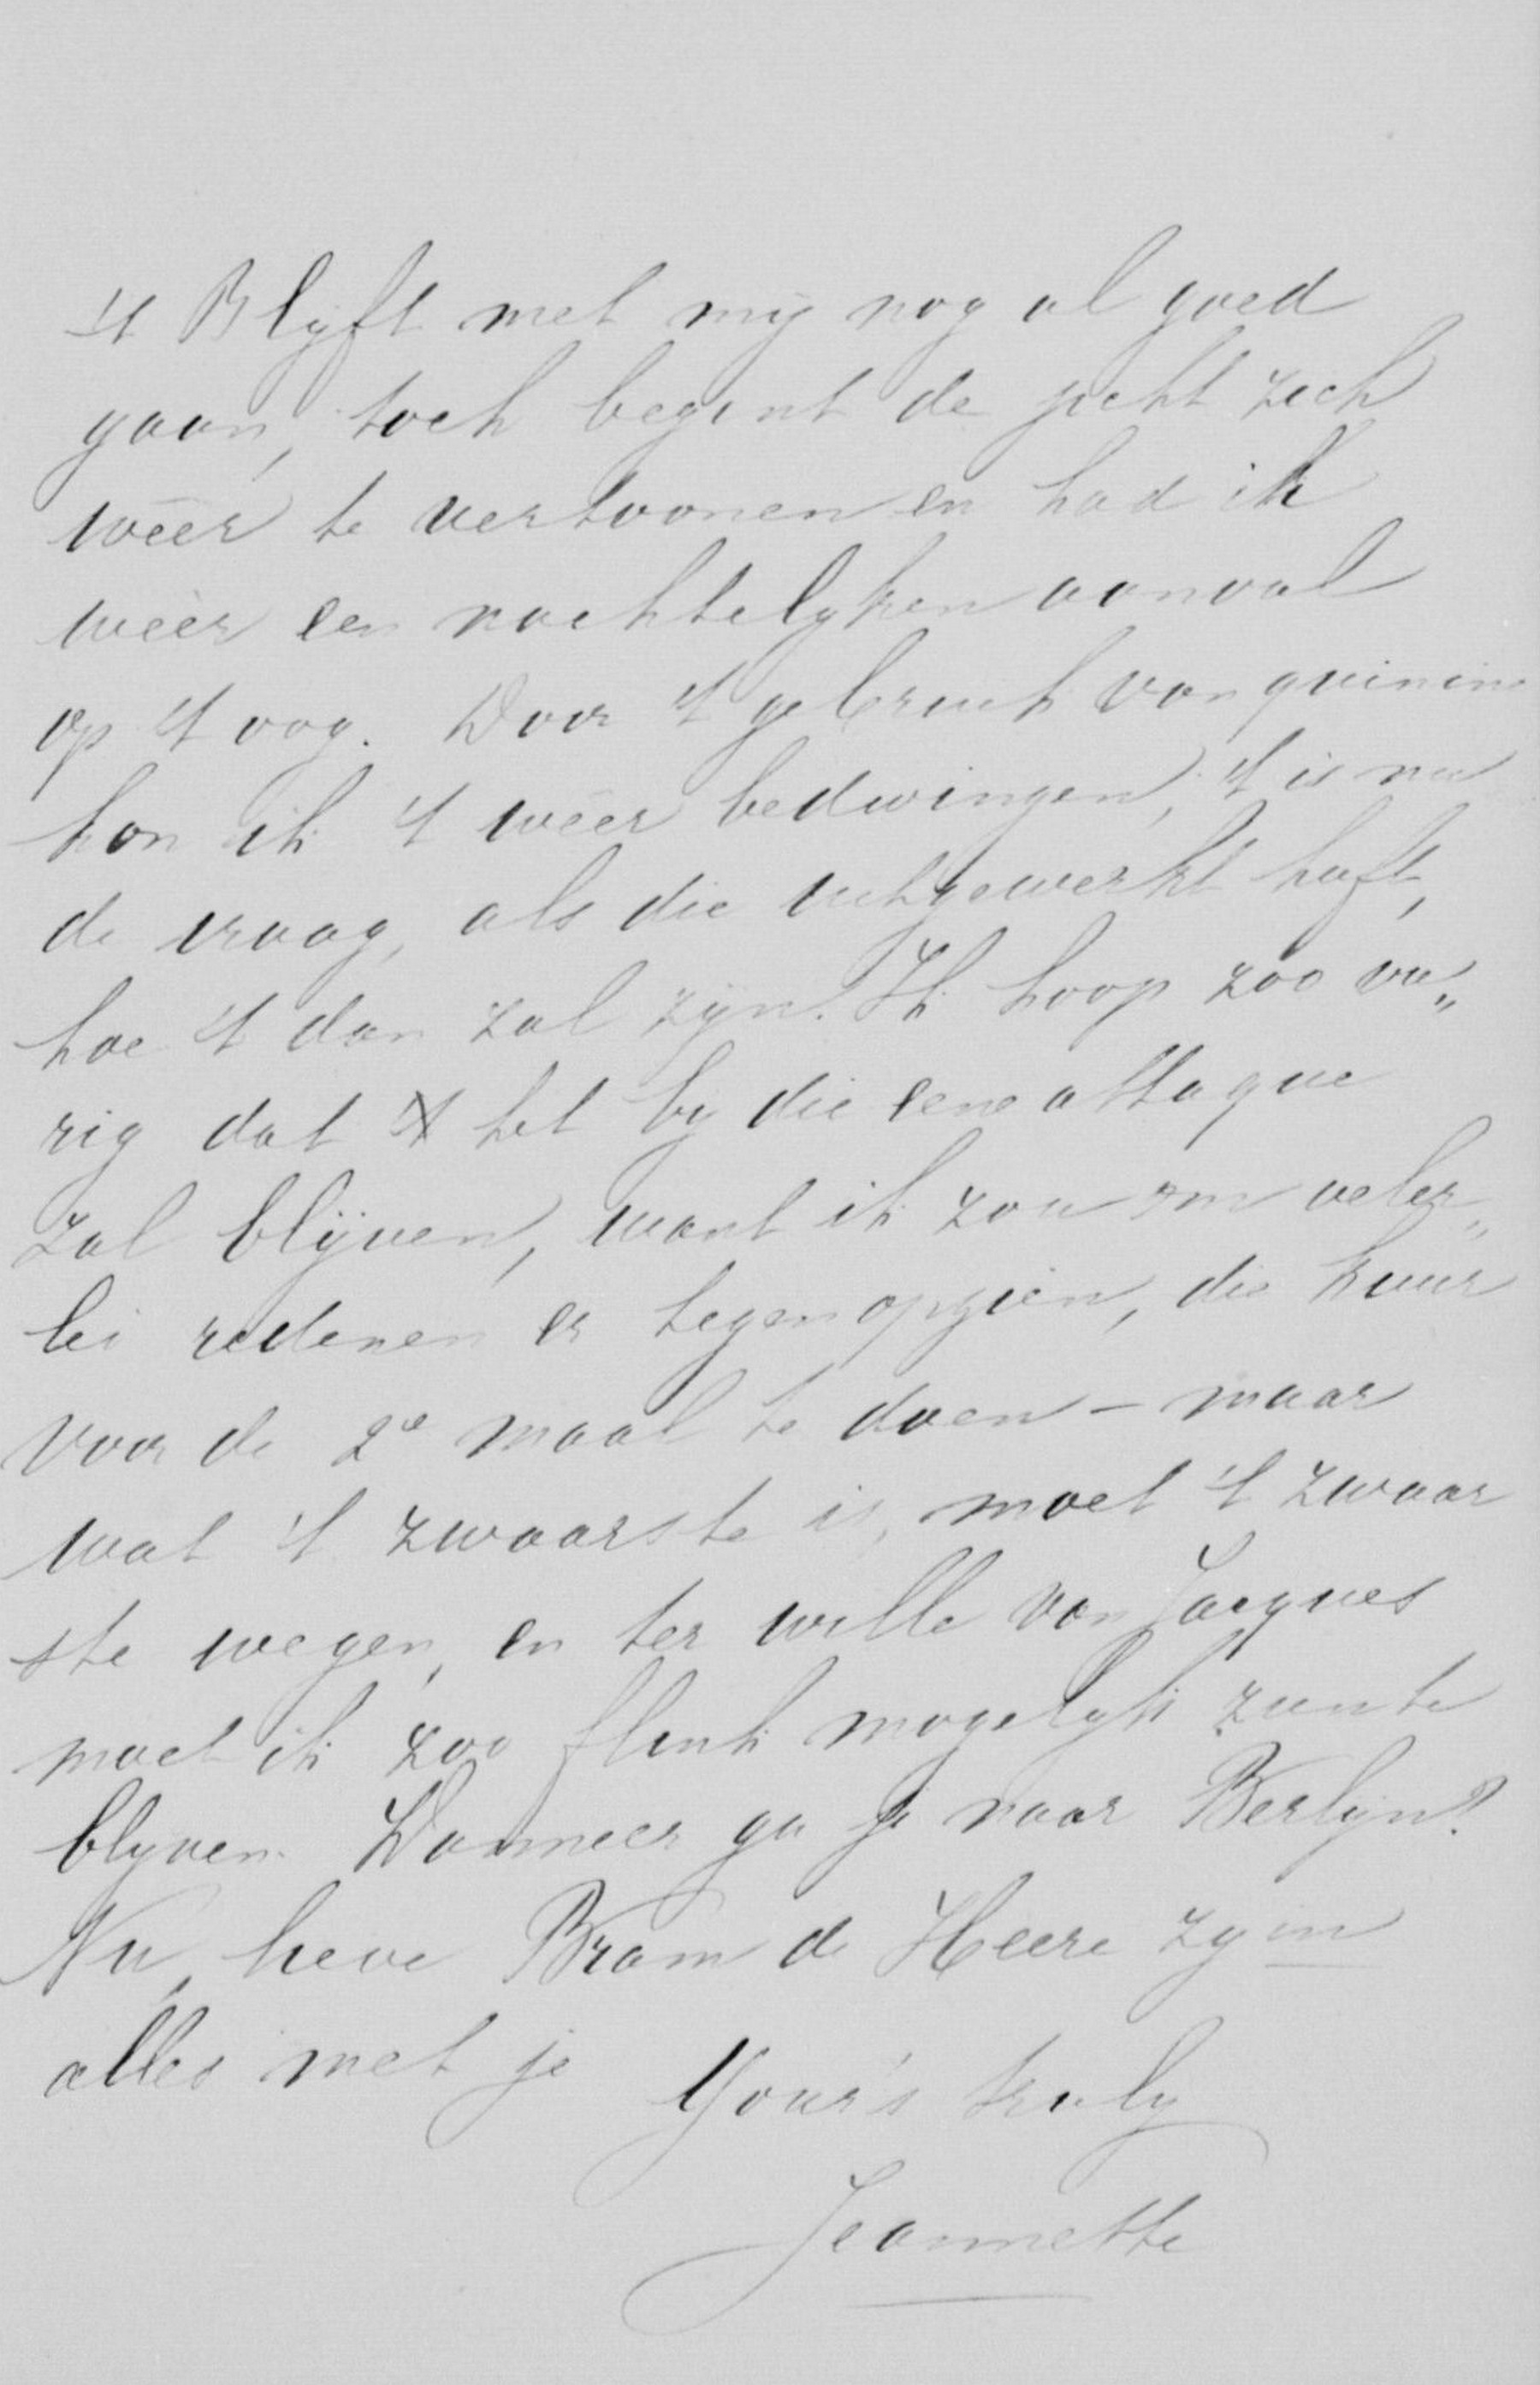 't Blijft met mij nog al goed
gaan, toch begint de jicht zich
wéér te vertoonen en had ik
wéér een nachtelyken aanval
op 't oog. Door 't gebruik van quinine
kon ik 't wéér bedwingen, 't is nu
de vraag, als die uitgewerkt heeft,
hoe 't dan zal zijn. Ik hoop zoo vu„
rig dat 't het by die eene attaque
zal blijven, want ik zou om veler„
lei redenen er tegen opzien, die kuur
voor de 2e maal te doen – maar
wat 't zwaarste is, moet 't zwaar
ste wegen, en ter wille van Jacques
moet ik zoo flink mogelyk zien te
blyven. Wanneer ga je naar Berlyn?
Nu, lieve Bram de Heere zy in
alles met je Your's truly
Jeannette